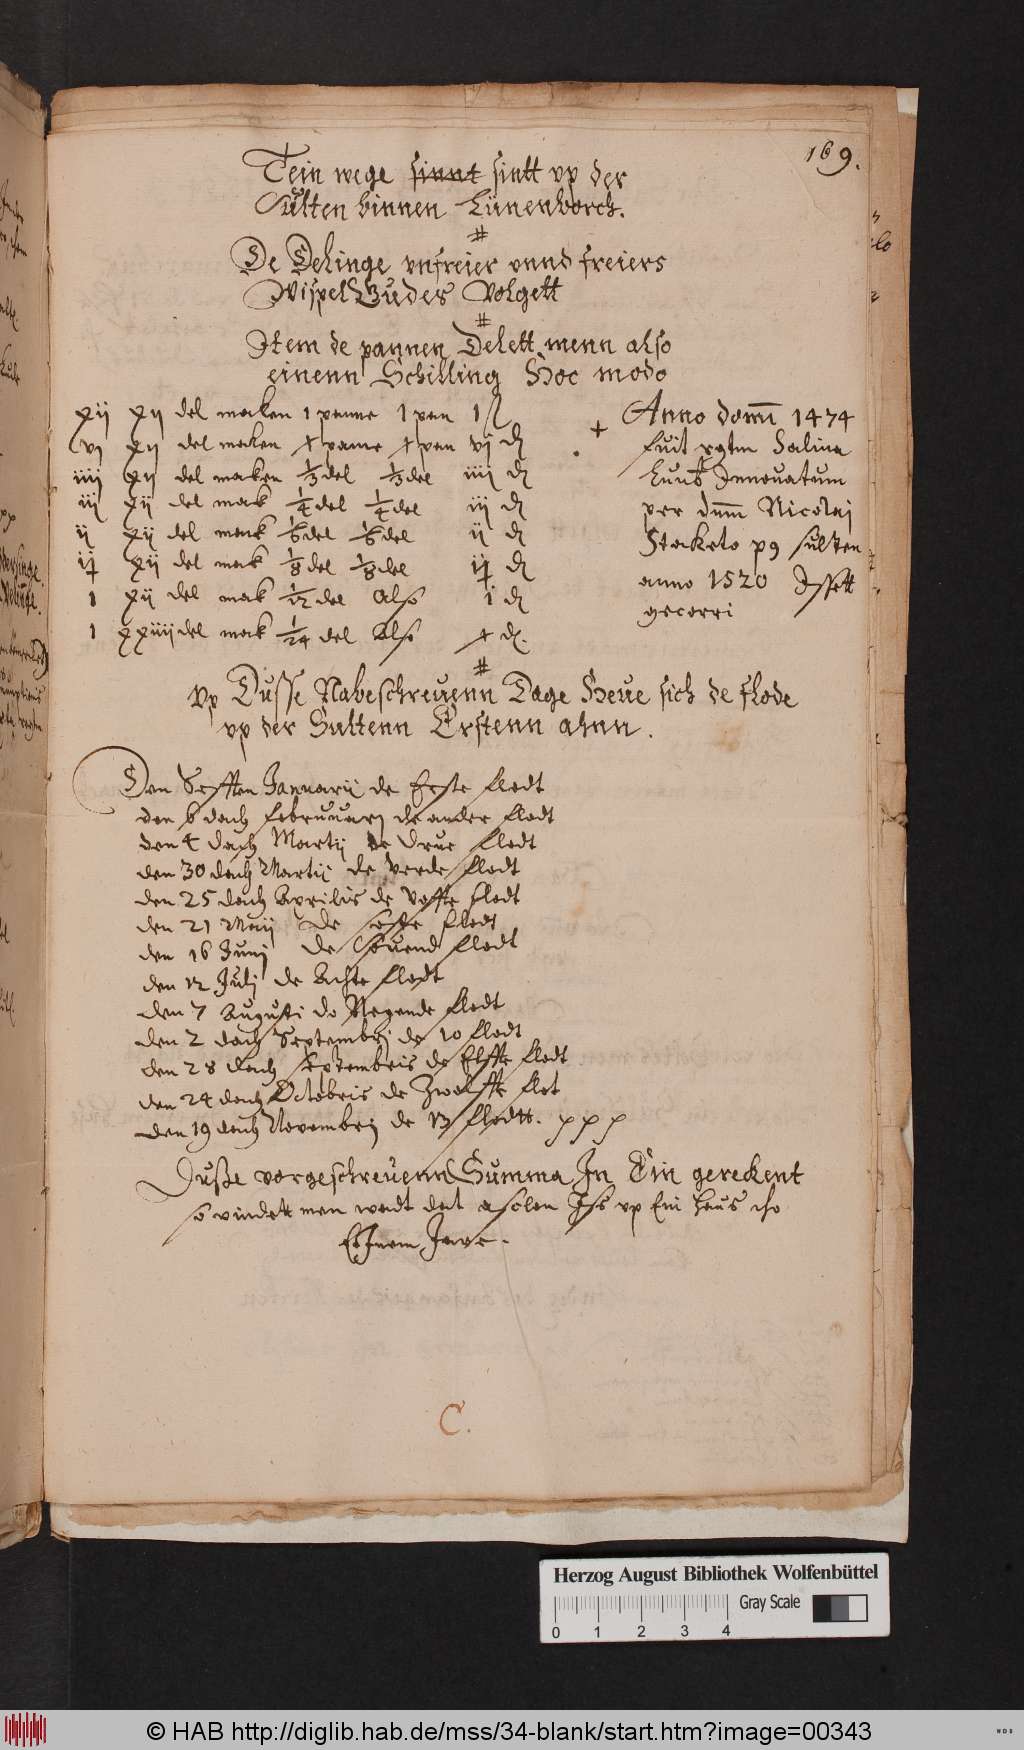 169.
Tein wege sinnt sintt vp der
Sülten binnen Lünenborch.
De Delinge vnfreier vnnd freiers
Wispel Gudes Volgett
Item de pannen Delett menn also
einenn Schilling Hoc modo
xij xij del maken 1 panne 1 pan 1 ß
vj xij del maken panne pan vj d
iiij xij del maken 1/3 del 1/3 del iiij d
iij xij del mak 1/4 del 1/4 del iij d
ij xij del mak 1/6 del 1/6 del ij d
xij del mak 1/8 del 1/8 del d
1 xij del mak 1/12 del Also i d
1 xxiiij del mak 1/24 del Also d.
Anno domi 1474
fuit Salina
Innouatum
per dnm Nicolaj
Staketo sulsten
anno 1520 Issett
Vp Dusse Nabeschreuenn Dage Heue sich de flode
vp der Sultenn Erstenn ahnn.
Den Januarij de Erste flodt
den 6 dach februuarj de ander flodt
den 4 dach Martij de Drue flodt
den 30 dach Martij de Verde flodt
den 25 dach Aprilis de Voffte flodt
den 21 Maij De soste flodt
den 16 Junj De Souend flodt
den 12 Julj de Achte flodt
den 7 Augusti de Negende flodt
den 2 dach Septembrj de 10 flodt
den 28 dach Septembris de Elffte flodt
den 24 dach Octobris de Zwolffte flot
den 19 dach Novembrj de 13 flodtt.
Duße vorgeschreuenn Summa In Ein gerekent
so vindett men wadt dat solen Iss vp Ein haus
Jare.
C.
Herzog August Bibliothek Wolfenbüttel
Gray Scale
0 1 2 3 4
© HAB http://diglib.hab.de/mss/34-blank/start.htm?image=00343